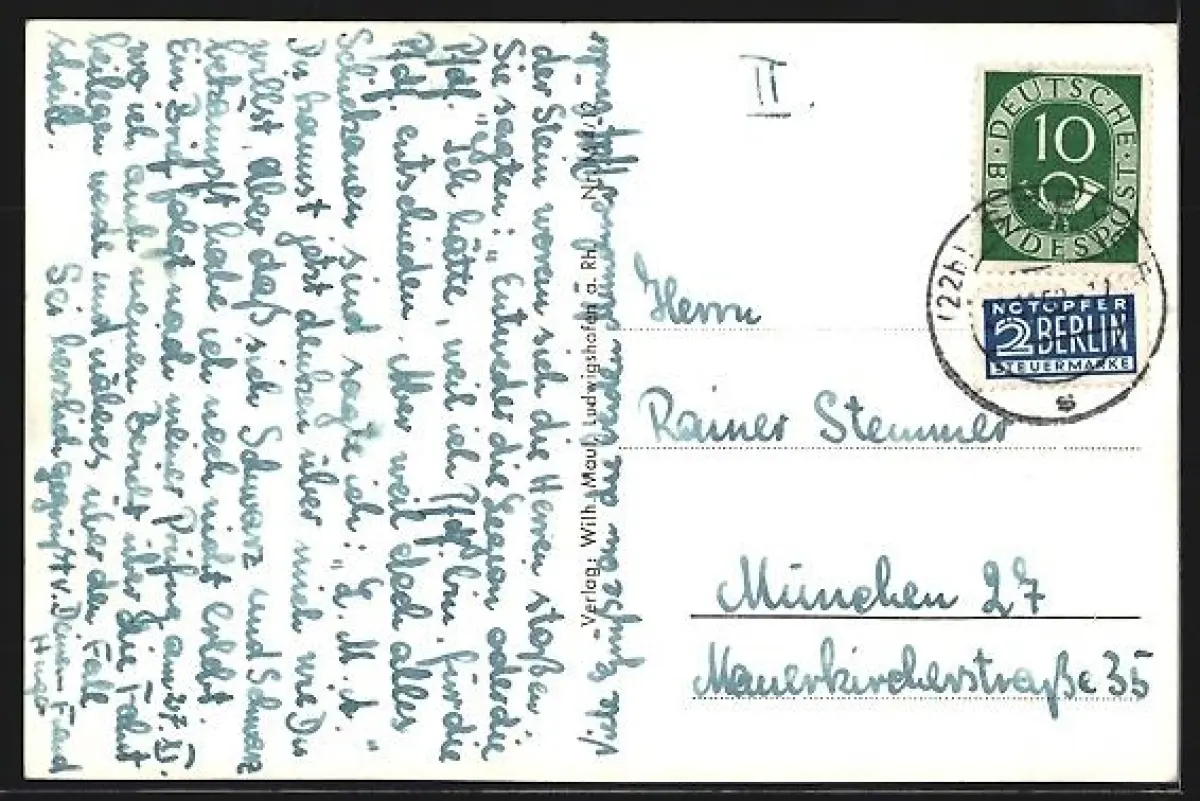 II.
der Stein woran sich die Herren stoßen.
Sie sagten: „Entweder die Legion oder die
Pfdf. „Ich hätte, weil ich Pfdf. bin, für die
Pfdf. entschieden. Aber weil doch alles
Schikanen sind sagte ich: „L.M.A."
Du kannst jetzt denken über mich wie Du
willst, aber daß sich Schwarz und Schwarz
bekämpft habe ich noch nicht erlebt.
Ein Brief folgt nach meiner Prüfung am 27.
wo ich auch meinen Bericht über die Fahrt
beilegen werde und näheres über den Fall
schreib.
Sei herzlich gegrüßt v. Deinem Freund
Hugo
Viele Grüße an die beiden Stemmer
Verlag: Wilh. Maul, Ludwigshafen a. Rh.
Herrn
Rainer Stemmer
München 27
Mauerkircherstraße 35
DEUTSCHE
10
BUNDESPOST
NOTOPFER
2 BERLIN
STEUERMARKE
(22b)
s